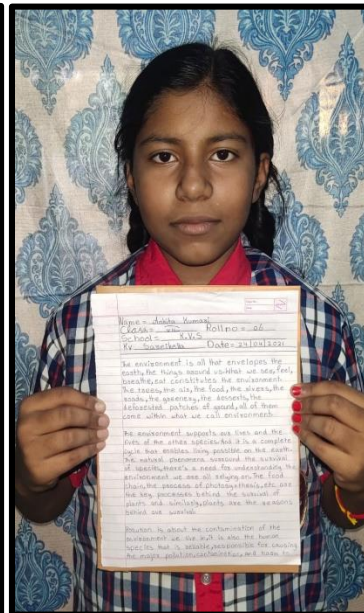 Name = Ankita Kumari
Class = VIII Roll no = 06
School = K.V.S
KV Date = 24/04/2021
The environment is all that envelopes the
earth, the things around us that we see, feel,
breathe, eat constitutes the environment.
The trees, the air, the food, the rivers, the
roads, the greenery, the desserts, the
deforested patches of ground, all of them
come within what we call environment.
The environment supports our lives and the
lives of the other species. And it is a complete
cycle that enables living possible on the earth.
The natural phenomena surround the survival
of species, there's a need for understanding the
environment we are all relying on. The food
chain, the process of photosynthesis, etc are
the key processes behind the survival of
plants and similarly, plants are the reasons
behind our survival.
Pollution is about the contamination of the
environment we live in. It is also the human
species that is responsible for causing
the major pollution and